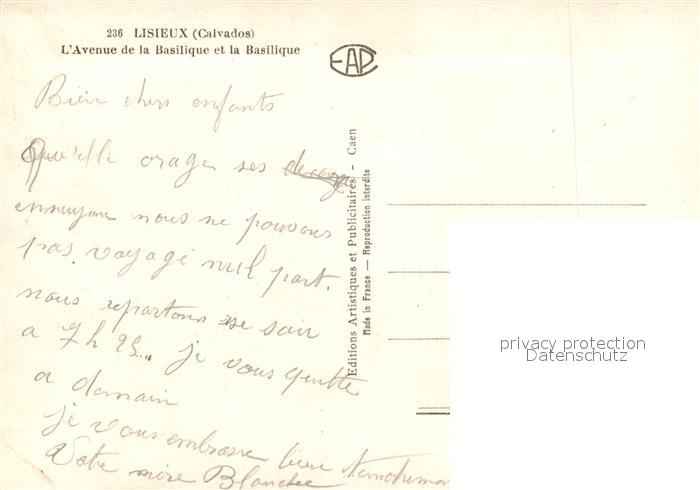 236 LISIEUX (Calvados)
L'Avenue de la Basilique et la Basilique
EAP
Bien chers enfants
Qu'elle orage ses
ennuyan nous ne pouvons
pas voyagé null part.
nous repartons se soir
a 7 h 25... je vous quitte
a demain
je vous embrasse bien
Votre mère Blanche
Editions Artistiques et Publicitaires - Caen
Made in France — Reproduction interdite
privacy protection
Datenschutz